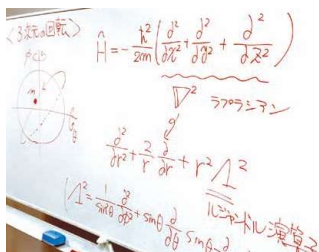 <3次元の回転>
Ĥ = -ħ²/2m (∂²/∂x² + ∂²/∂y² + ∂²/∂z²)
∇² ラプラシアン
∂²/∂r² + 2/r ∂/∂r + r² Λ²
ルジャンドル演算子
Λ² = 1/sinθ ∂²/∂φ² + sinθ ∂/∂θ sinθ